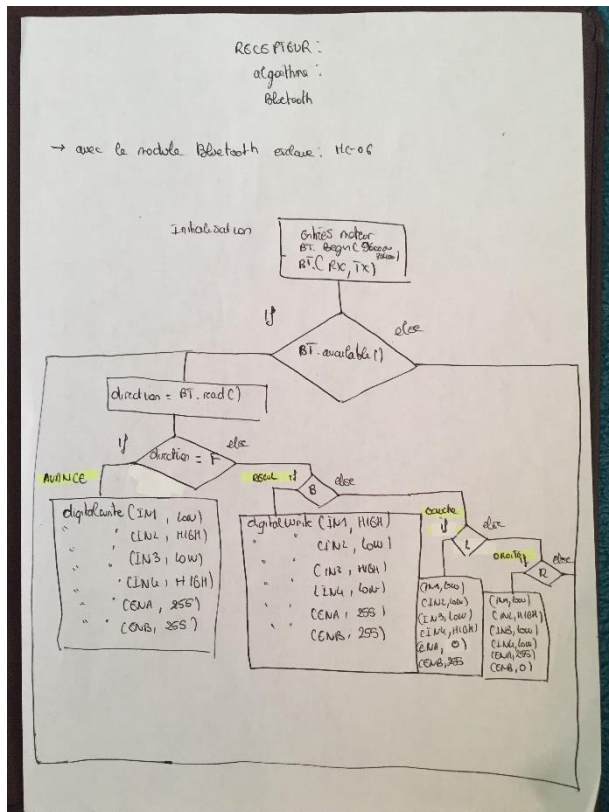 RECEPTEUR :
algorithme :
Bluetooth
→ avec le module Bluetooth esclave : HC-06
Initialisation
Entrées moteur
BT. Begin (9600
BT. ( RX, TX)
if
else
BT.available()
direction = BT.read()
if
else
direction = F
AVANCE
digitalwrite (IN1, LOW)
" " (IN2, HIGH)
" " (IN3, LOW)
" " (IN4, HIGH)
" " (ENA, 255)
" " (ENB, 255)
RECUL if
else
B
digitalwrite (IN1, HIGH)
" " (IN2, LOW)
" " (IN3, HIGH)
" " (IN4, LOW)
" " (ENA, 255)
" " (ENB, 255)
Gauche
if
else
L
(IN1, LOW)
(IN2, LOW)
(IN3, LOW)
(IN4, HIGH)
(ENA, 0)
(ENB, 255
DROITE if
else
R
(IN1, LOW)
(IN2, HIGH)
(IN3, LOW)
(IN4, LOW)
(ENA, 255)
(ENB, 0)